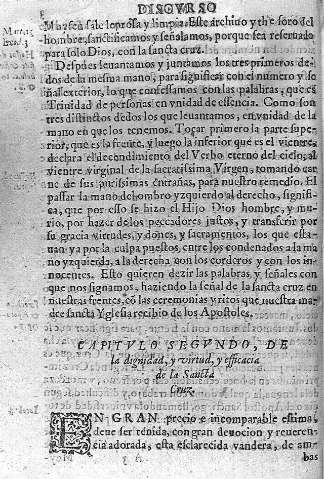 DISCVRSO
sale leprosa y limpia. Este archivo y thesoro del
hombre, sanctificamos y señalamos, porque sea reseruado
para solo Dios, con la sancta cruz.
Despues leuantamos y juntamos los tres primeros de-
dos de la mesma mano, para significar con el numero y se
ñal exterior, lo que confessamos con las palabras, que es
Trinidad de personas en vnidad de essencia. Como son
tres distinctos dedos los que leuantamos, en vnidad de la
mano en que los tenemos. Tocar primero la parte supe-
rior, que es la frente, y luego la inferior que es el vientre,
declara el decendimiento del Verbo eterno del cielo, al
vientre virginal de la sacratissima Virgen, tomando car-
ne de sus purissimas entrañas, para nuestro remedio. El
passar la mano del hombro yzquierdo al derecho, signifi-
ca, que por esso se hizo el Hijo Dios hombre, y mu-
rio, por hazer de los peccadores justos, y transferir por
su gracia virtudes, y dones, y sacramentos, los que esta-
uan ya por la culpa puestos, entre los condenados a la ma
no yzquierda, a la derecha con los corderos y con los in-
nocentes. Esto quieren dezir las palabras y señales con
que nos signamos, haziendo la señal de la sancta cruz en
nuestras frentes, cõ las ceremonias y ritos que nuestra ma
dre sancta Yglesia recibio de los Apostoles.
CAPITVLO SEGVNDO, DE
la dignidad, y virtud, y efficacia
de la Sancta
Cruz.
EN GRAN precio e incomparable estima,
deue ser tenida, con gran deuocion y reueren-
cia adorada, esta esclarecida vandera, de am-
bas